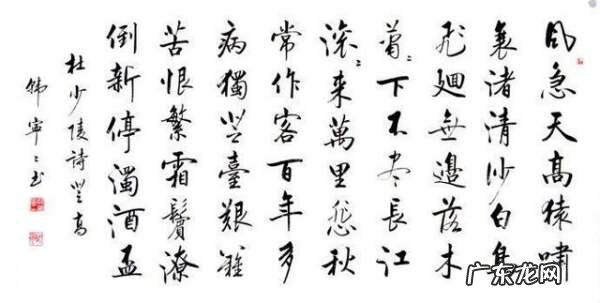 風急天高猿嘯
哀渚清沙白鳥
飛廻無邊落木
蕭〻下不尽長江
滚〻来萬里悲秋
常作客百年多
病獨登臺艱難
苦恨繁霜鬢潦
倒新停濁酒盃
杜少陵詩登高
韩寧〻书
广东龙网